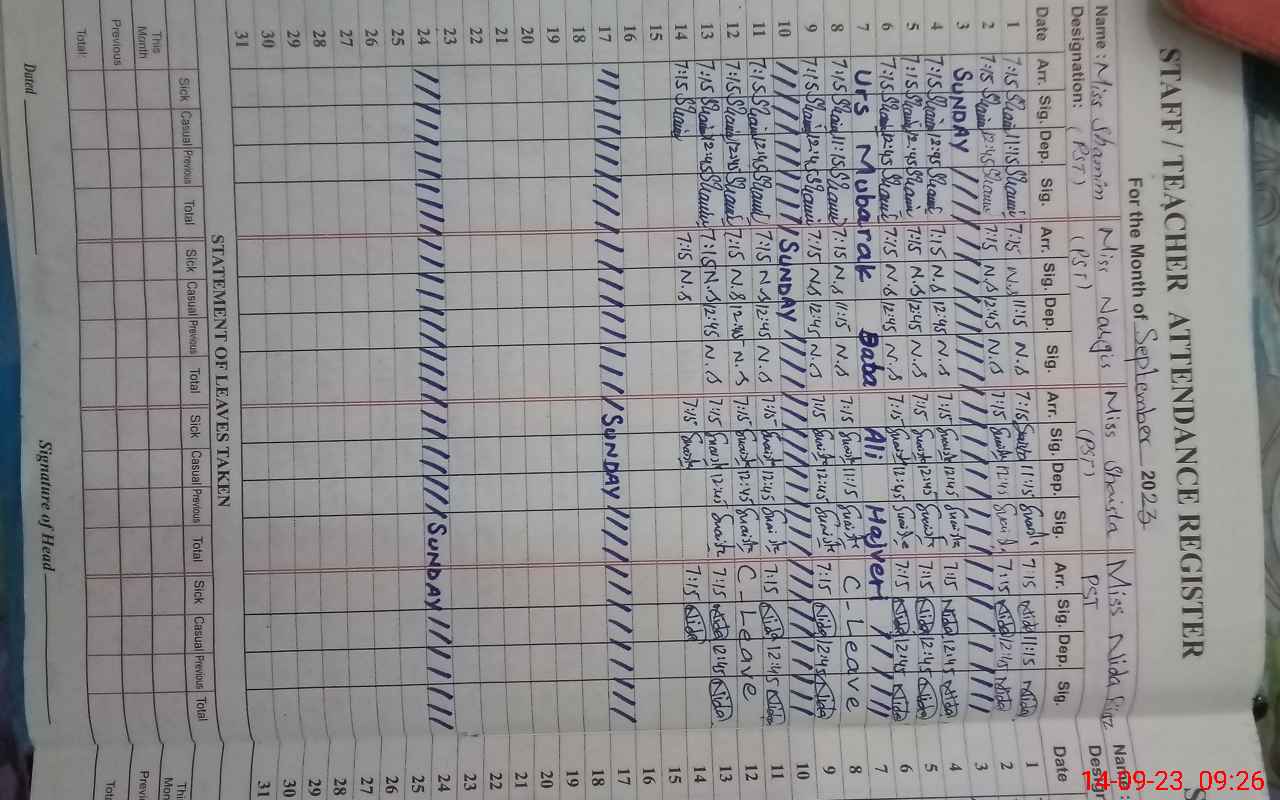 STAFF / TEACHER ATTENDANCE REGISTER
For the Month of September 2023
Name : Miss Shamim Miss Nargis Miss Shaista Miss Nida Riaz Name :
Designation: (PST) (PST) (PST) PST
Date Arr. Sig. Dep. Sig. Arr. Sig. Dep. Sig. Arr. Sig. Dep. Sig. Arr. Sig. Dep. Sig. Date
1 7:15 11:15 7:15 N.S 11:15 N.S 7:15 11:15 7:15 Nida 11:15 Nida 1
2 7:15 12:45 7:15 N.S 12:45 N.S 7:15 12:45 7:15 Nida 12:45 Nida 2
3 SUNDAY 3
4 7:15 12:45 7:15 N.S 12:45 N.S 7:15 12:45 7:15 Nida 12:45 Nida 4
5 7:15 12:45 7:15 N.S 12:45 N.S 7:15 12:45 7:15 Nida 12:45 Nida 5
6 7:15 12:45 7:15 N.S 12:45 N.S 7:15 12:45 7:15 Nida 12:45 Nida 6
7 Urs Mubarak Baba Ali Hajveri 7
8 7:15 11:15 7:15 N.S 11:15 N.S 7:15 11:15 C - Leave 8
9 7:15 12:45 7:15 N.S 12:45 N.S 7:15 12:45 7:15 Nida 12:45 Nida 9
10 SUNDAY 10
11 7:15 12:45 7:15 N.S 12:45 N.S 7:15 12:45 7:15 Nida 12:45 Nida 11
12 7:15 12:45 7:15 N.S 12:45 N.S 7:15 12:45 C - Leave 12
13 7:15 12:45 7:15 N.S 12:45 N.S 7:15 12:45 7:15 Nida 12:45 Nida 13
14 7:15 7:15 N.S 7:15 7:15 Nida 14
15 15
16 16
17 SUNDAY 17
18 18
19 19
20 20
21 21
22 22
23 23
24 SUNDAY 24
25 25
26 26
27 27
28 28
29 29
30 30
31 31
STATEMENT OF LEAVES TAKEN
Sick Casual Previous Total Sick Casual Previous Total Sick Casual Previous Total Sick Casual Previous Total
This Month
Previous
Total:
Dated
Signature of Head
14-09-23 09:26